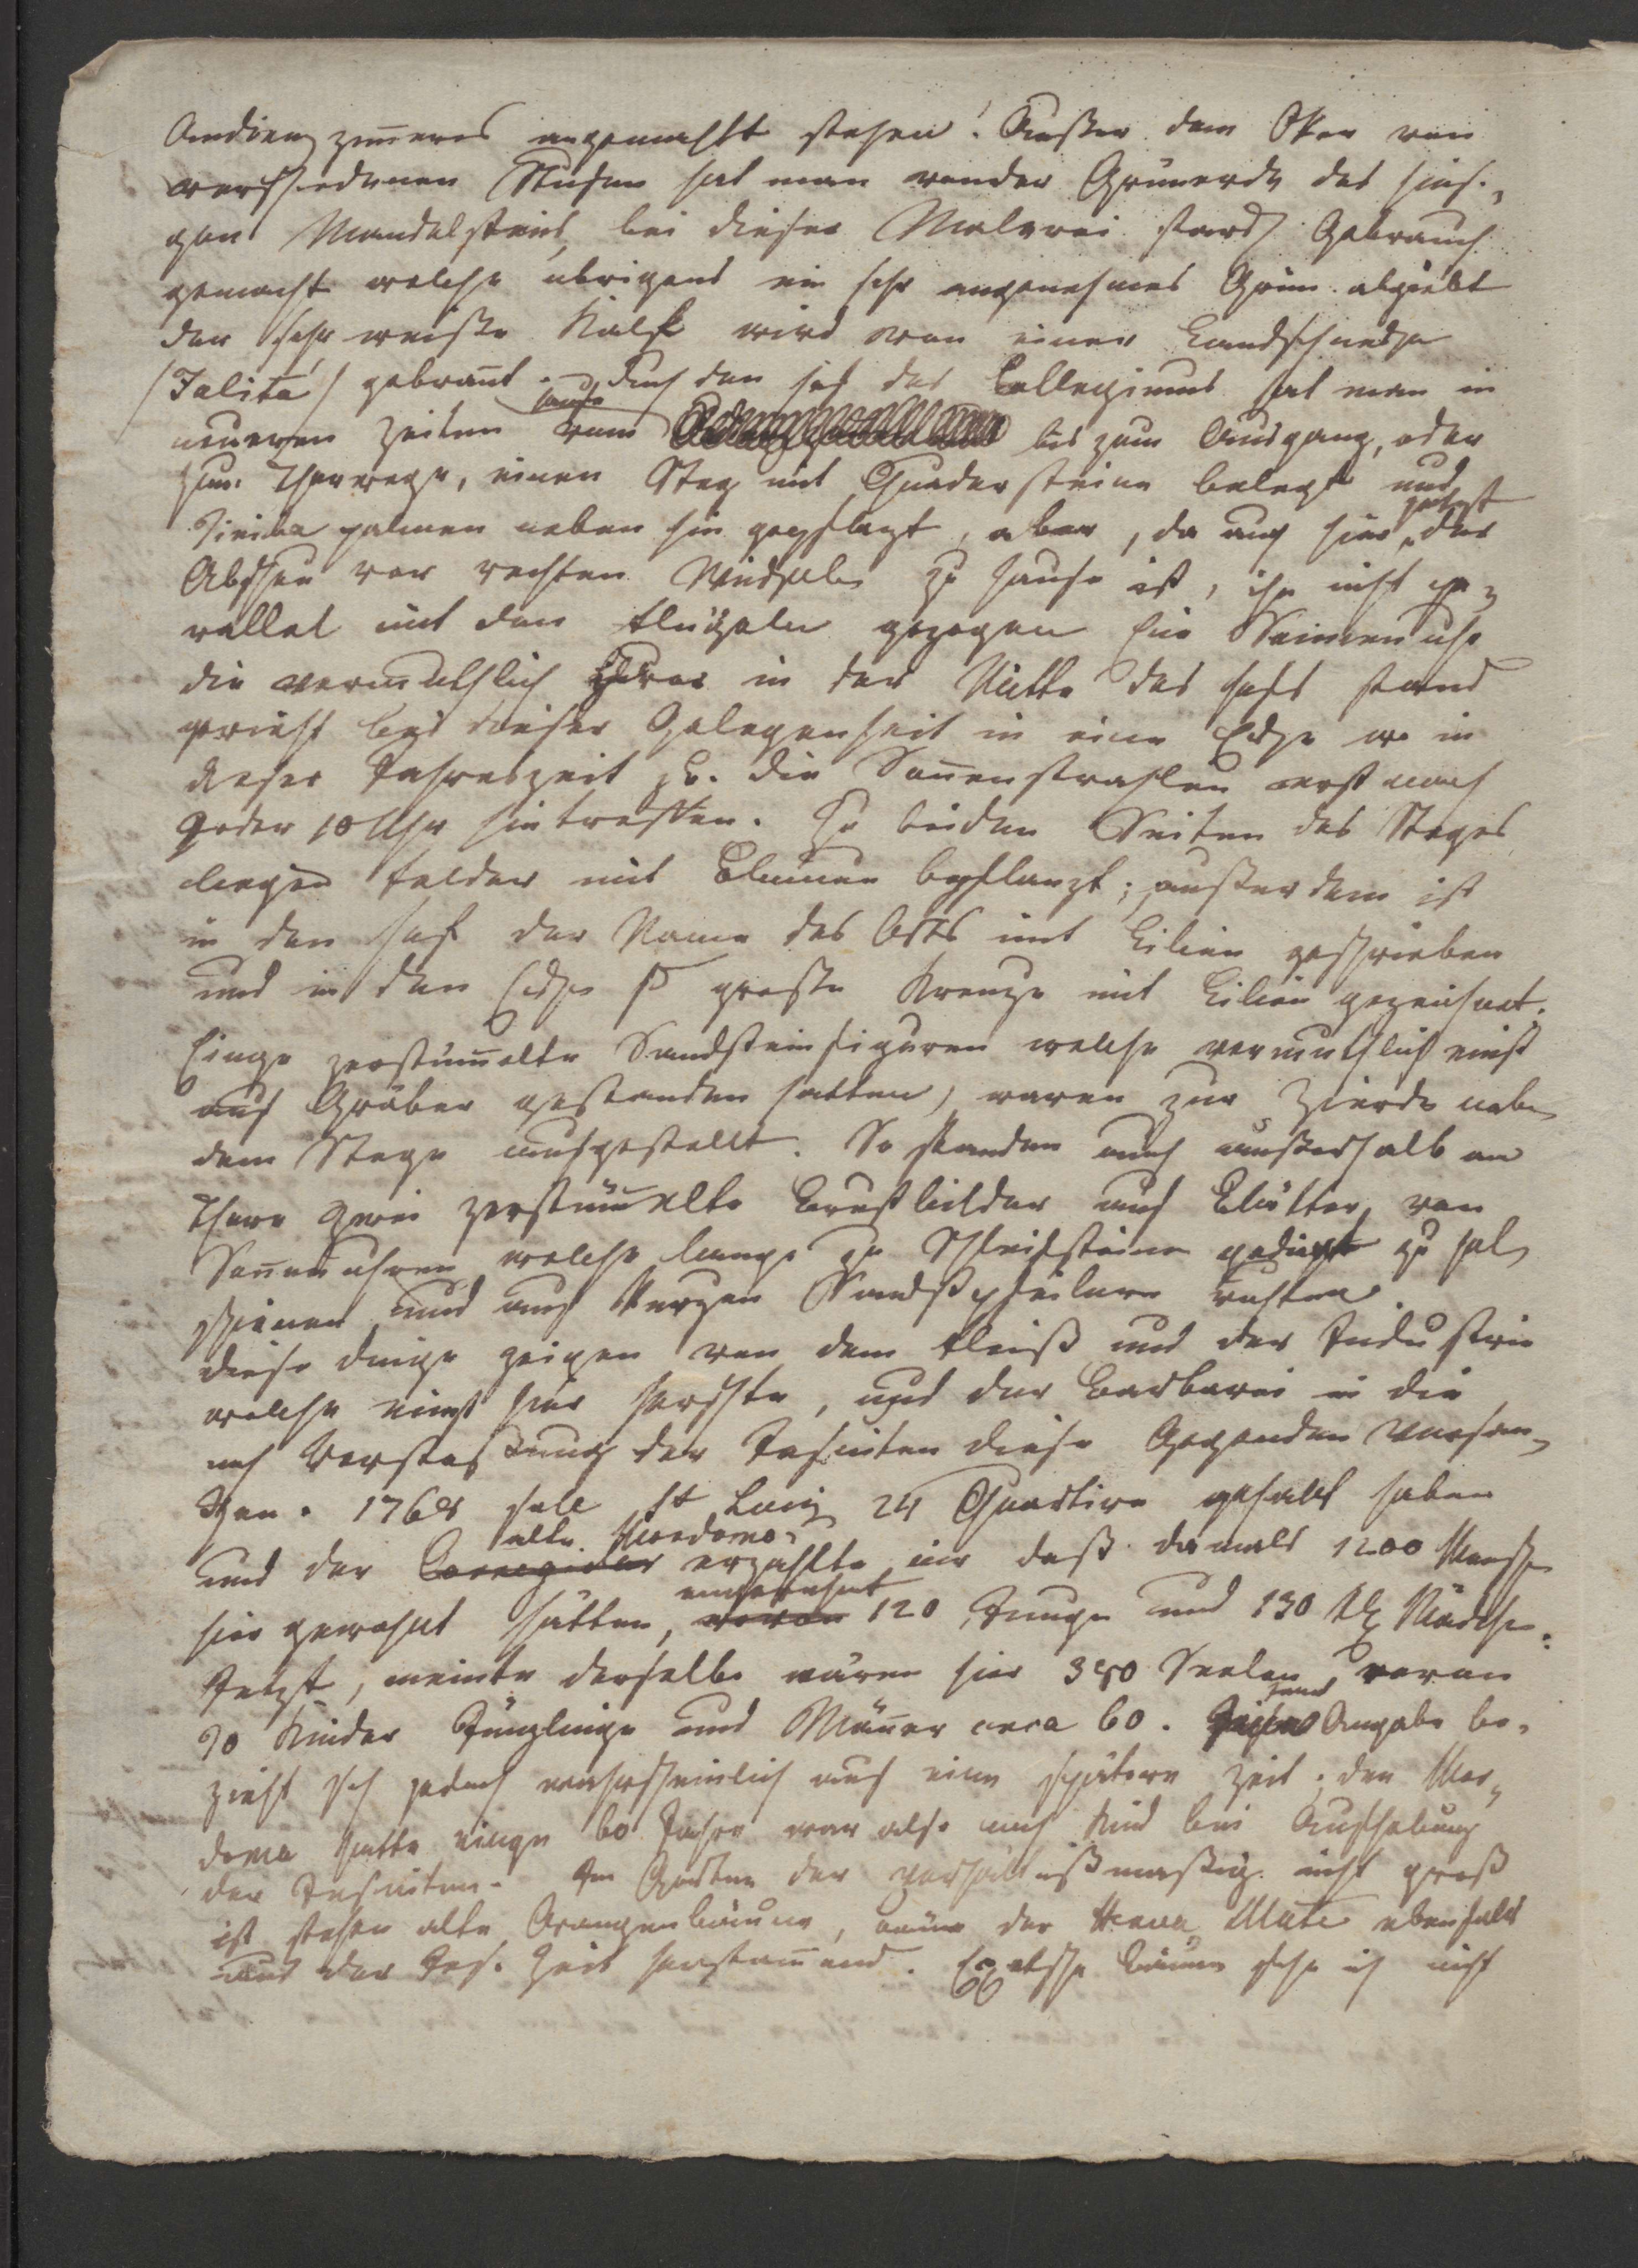 Audienzzim̅eres angemahlt stehen. Ausser dem Oker von
verschiedenen Stufen hat man von der Grünerde des hiesi-
gen Mandelsteins, bei dieser Malerei starck Gebrauch
gemacht welche übrigens ein sehr angenehmes Grün abgiebt
der sehr weisse Kalk wird von einer Landschnecke
(Talita) gebran̅t. Durch den Hof des Collegiums hat man in
neueren Zeiten vom Hause bis zum Ausgang, oder
zum Thorwege, einen Steg mit Quadersteine belegt und
palmen neben hin gepflanzt, aber, da auch hier der
Abscheu vor rechten Winckeln zu Hause ist, ihn nicht pa-
rallel mit den Flügeln gezogen Eine Son̅enuhr
die vermuthlich in der Mitte des Hofs stand
gerieth bei dieser Gelegenheit in eine Ecke wo in
dieser Jahreszeit die Son̅enstrahlen erst nach
9 oder 10 Uhr hintreffen. Zu beiden Seiten des Steges
liegen Felder mit Blumen bepflanzt; ausserdem ist
in den Hof der Name des Orts mit Lilien geschrieben
und in den Ecken grosse Kreuze mit Lilien gezeichnet.
Einige zerstüm̅elte Sandsteinfiguren welche vermuthlich einst
auf Gräber gestanden hatten, waren zur Zierde neben
dem Stege aufgestellt. So standen auch ausserhalb am
Thore zwei zerstüm̅elte Brustbilder auch Blätter von
Son̅enuhren welche lange zu Schleifsteine gedient zu haben
schienen und auf kurzen Sandstpfeilern ruhten.
diese dinge zeigen von dem Fleiss und der Industrie
welche einst hier herschte, und der Barbarei in die
nach Verstossung der Jesuiten diese Gegenden versan-
ken. 1768 soll St Luiz 24 Quartire gehabt haben
alte Mordomo
und der Corregidor erzahlte mir dass damals 1200 Mensch
hier gewohnt hätten, 120 Junge und 130 Mädchen.
Jetzt, meinte derselbe wären hier 350 Seelen, woran
70 Kinder Jünglinge und Män̅er circa 60. Angabe be-
zieht sich jedoch wahrscheinlich auf eine spätere Zeit; der Mor-
domo hatte einige 60 Jahre war also noch Kind bei Aufhebung
der Jesuiten. Im Garten der verhältnissmassig nicht gross
ist stehen alte Orangenbäume, Bäume der Herva Mate ebenfalls
aus der Jes. Zeit herstam̅end. Bäume sehe ich nicht